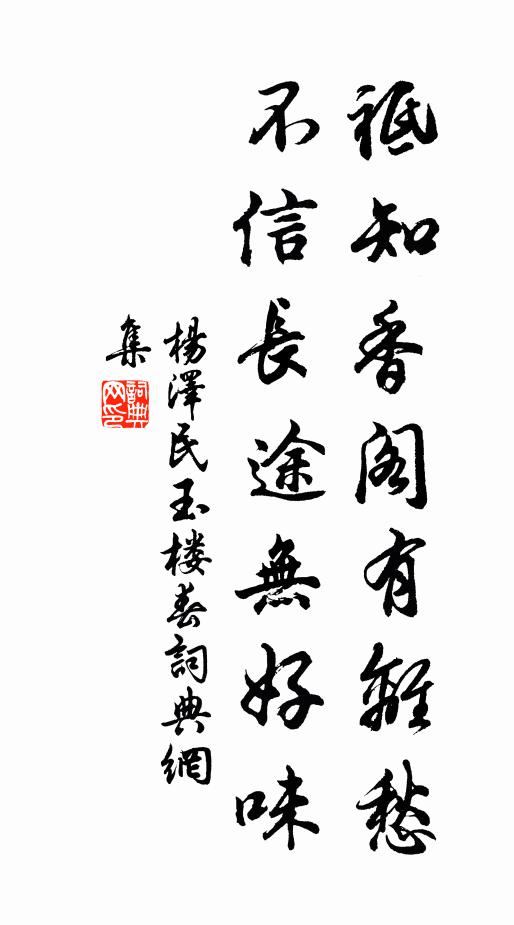 祗知香阁有離愁
不信長途無好味
楊澤民玉楼春詞典網
集
詞典網印